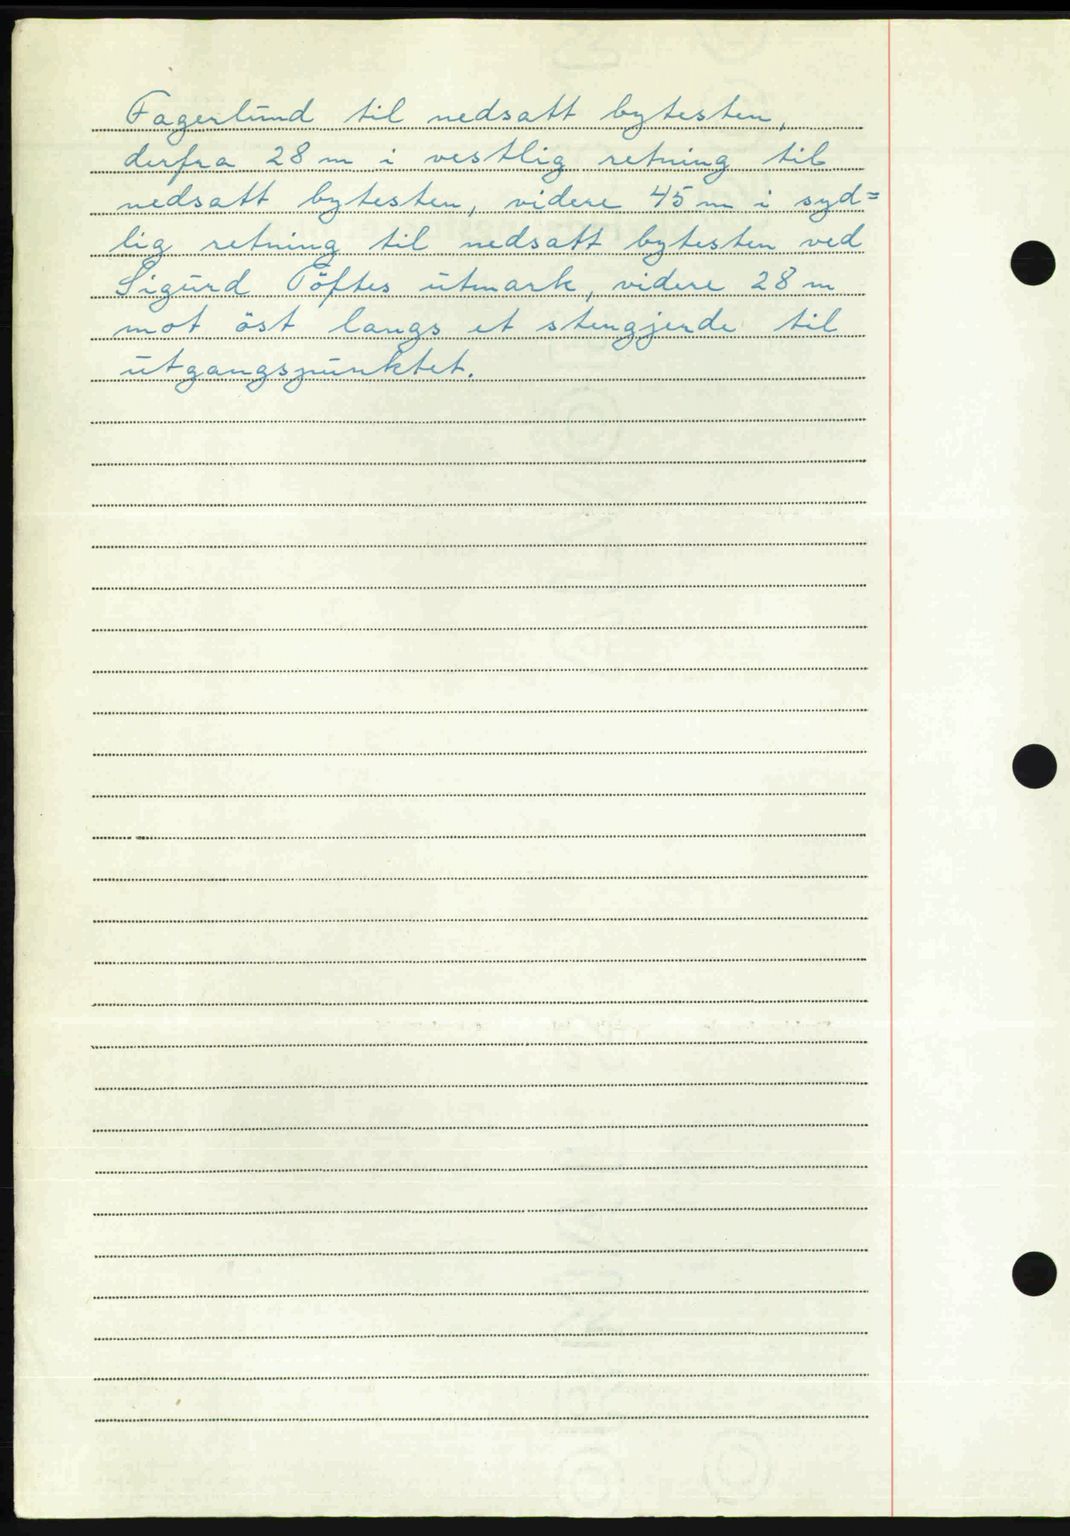 Fagerlund til nedsatt bytesten,
derfra 28 m i vestlig retning til
nedsatt bytesten, videre 45 m i syd=
lig retning til nedsatt bytesten ved
Sigurd Töftes utmark, videre 28 m
mot öst langs et stengjerde til
utgangspunktet.